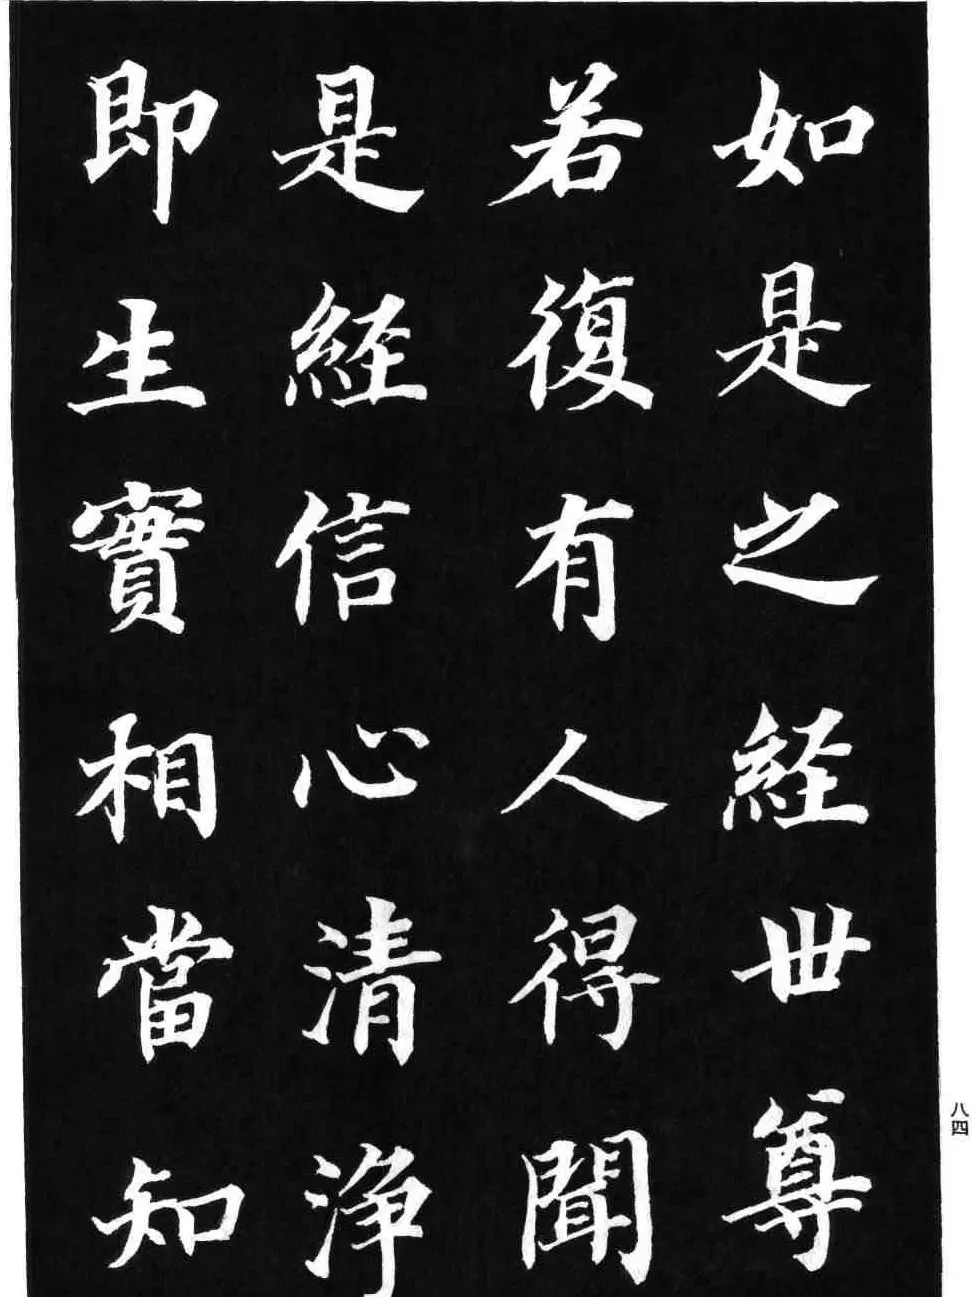 如是之経世尊
若復有人得聞
是経信心清浄
即生實相當知
八四